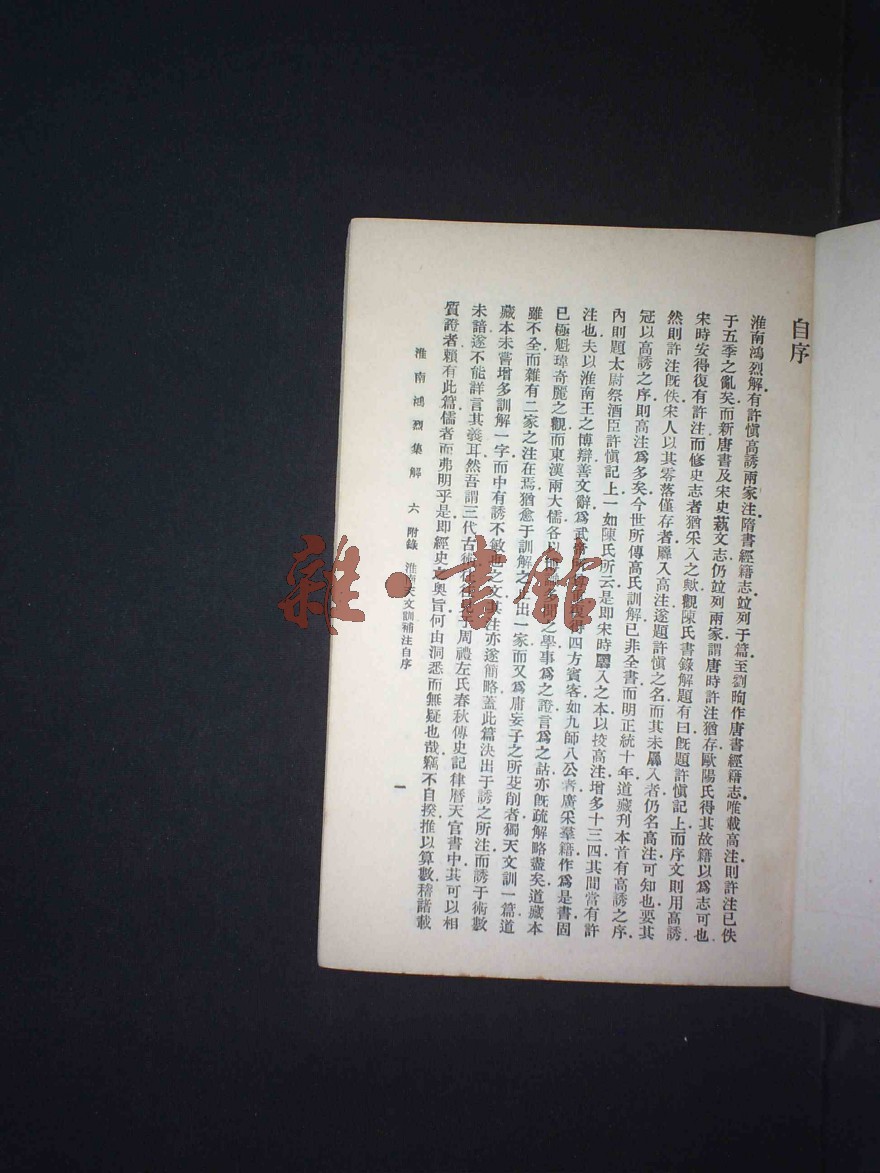 自序
淮南鴻烈解有許愼高誘兩家注隋書經籍志竝列于篇至劉昫作唐書經籍志唯載高注則許注已佚
于五季之亂矣而新唐書及宋史藝文志仍竝列兩家謂唐時許注猶存歐陽氏得其故籍以爲志可也
宋時安得復有許注而修史志者猶采入之歟觀陳氏書錄解題有曰旣題許愼記上而序文則用高誘
然則許注旣佚宋人以其零落僅存者羼入高注遂題許愼之名而其未羼入者仍名高注可知也要其
冠以高誘之序則高注爲多矣今世所傳高氏訓解已非全書而明正統十年道藏刊本首有高誘之序
內則題太尉祭酒臣許愼記上一如陳氏所云是卽宋時羼入之本以挍高注增多十三四其間當有許
注也夫以淮南王之博辯善文辭爲武帝所 四方賓客如九師八公者廣采羣籍作爲是書固
已極魁瑋奇麗之觀而東漢兩大儒各以 之學事爲之證言爲之詁亦旣疏解略盡矣道藏本
雖不全而雜有二家之注在焉猶愈于訓解之 出一家而又爲庸妄子之所芟削者獨天文訓一篇道
藏本未嘗增多訓解一字而中有誘不敏也之文其注亦遂簡略蓋此篇決出于誘之所注而誘于術數
未諳遂不能詳言其義耳然吾謂三代古術往往見于周禮左氏春秋傳史記律曆天官書中其可以相
質證者賴有此篇儒者而弗明乎是卽經史之奧旨何由洞悉而無疑也哉竊不自揆推以算數稽諸載
淮南鴻烈集解 六 附錄 淮南天文訓補注自序
一
雜·書館